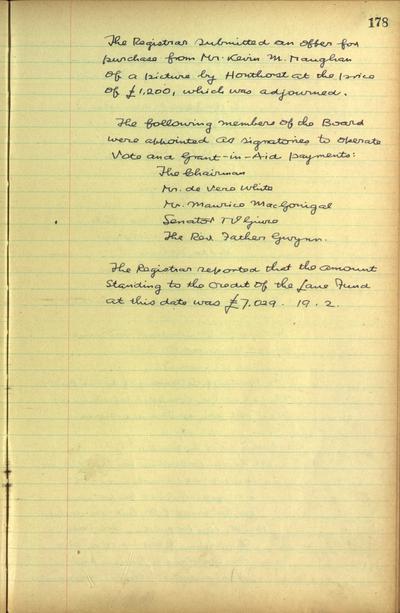 178
The Registrar submitted an offer for
purchase from Mr. Kevin M. Maughan
of a picture by Honthorst at the price
of £1,200, which was adjourned.
The following members of the Board
were appointed as signatories to operate
Vote and Grant-in-Aid payments:
The Chairman
Mr. de Vere White
Mr. Maurice MacGonigal
Senator
The Rev. Father Gwynn.
The Registrar reported that the amount
standing to the credit of the Lane Fund
at this date was £7,029. 19. 2.